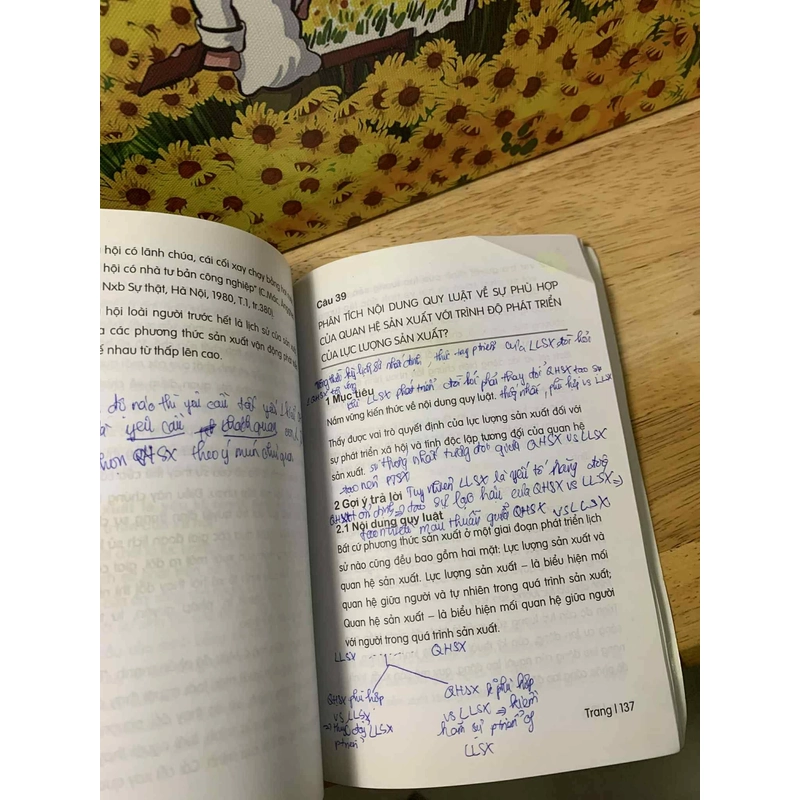 hội có lãnh chúa, cái cối xay chạy bằng
hội có nhà tư bản công nghiệp" (C.Mác,
Nxb Sự thật, Hà Nội, 1980, T.1, tr.380)
hội loài người trước hết là lịch sử của
a các phương thức sản xuất vận động
ế nhau từ thấp lên cao.
độ nào thì yêu cầu tất yếu
yêu cầu khách quan
chọn QHSX theo ý muốn chủ quan
Câu 39
PHÂN TÍCH NỘI DUNG QUY LUẬT VỀ SỰ PHÙ HỢP
CỦA QUAN HỆ SẢN XUẤT VỚI TRÌNH ĐỘ PHÁT TRIỂN
CỦA LỰC LƯỢNG SẢN XUẤT?
LLSX đòi hỏi
LLSX phát triển đòi hỏi phải thay đổi QHSX tạo sự
1 Mục tiêu
Nắm vững kiến thức về nội dung quy luật. thống nhất, phù hợp vs LLSX
Thấy được vai trò quyết định của lực lượng sản xuất đối với
sự phát triển xã hội và tính độc lập tương đối của quan hệ
sản xuất. sự thống nhất tương đối giữa QHSX vs LLSX
tạo nên PTSX
2 Gợi ý trả lời Tuy nhiên LLSX là yếu tố hàng động
QHSX ổn định => do sự lạc hậu của QHSX vs LLSX =>
2.1 Nội dung quy luật mâu thuẫn giữa QHSX vs LLSX
Bất cứ phương thức sản xuất ở một giai đoạn phát triển lịch
sử nào cũng đều bao gồm hai mặt: Lực lượng sản xuất và
quan hệ sản xuất. Lực lượng sản xuất – là biểu hiện mối
quan hệ giữa người và tự nhiên trong quá trình sản xuất;
Quan hệ sản xuất – là biểu hiện mối quan hệ giữa người
với người trong quá trình sản xuất.
LLSX QHSX
QHSX phù hợp
vs LLSX
=> thúc đẩy LLSX
ptriển
QHSX k phù hợp
vs LLSX => kiềm
hãm sự ptriển of
LLSX
Trang | 137